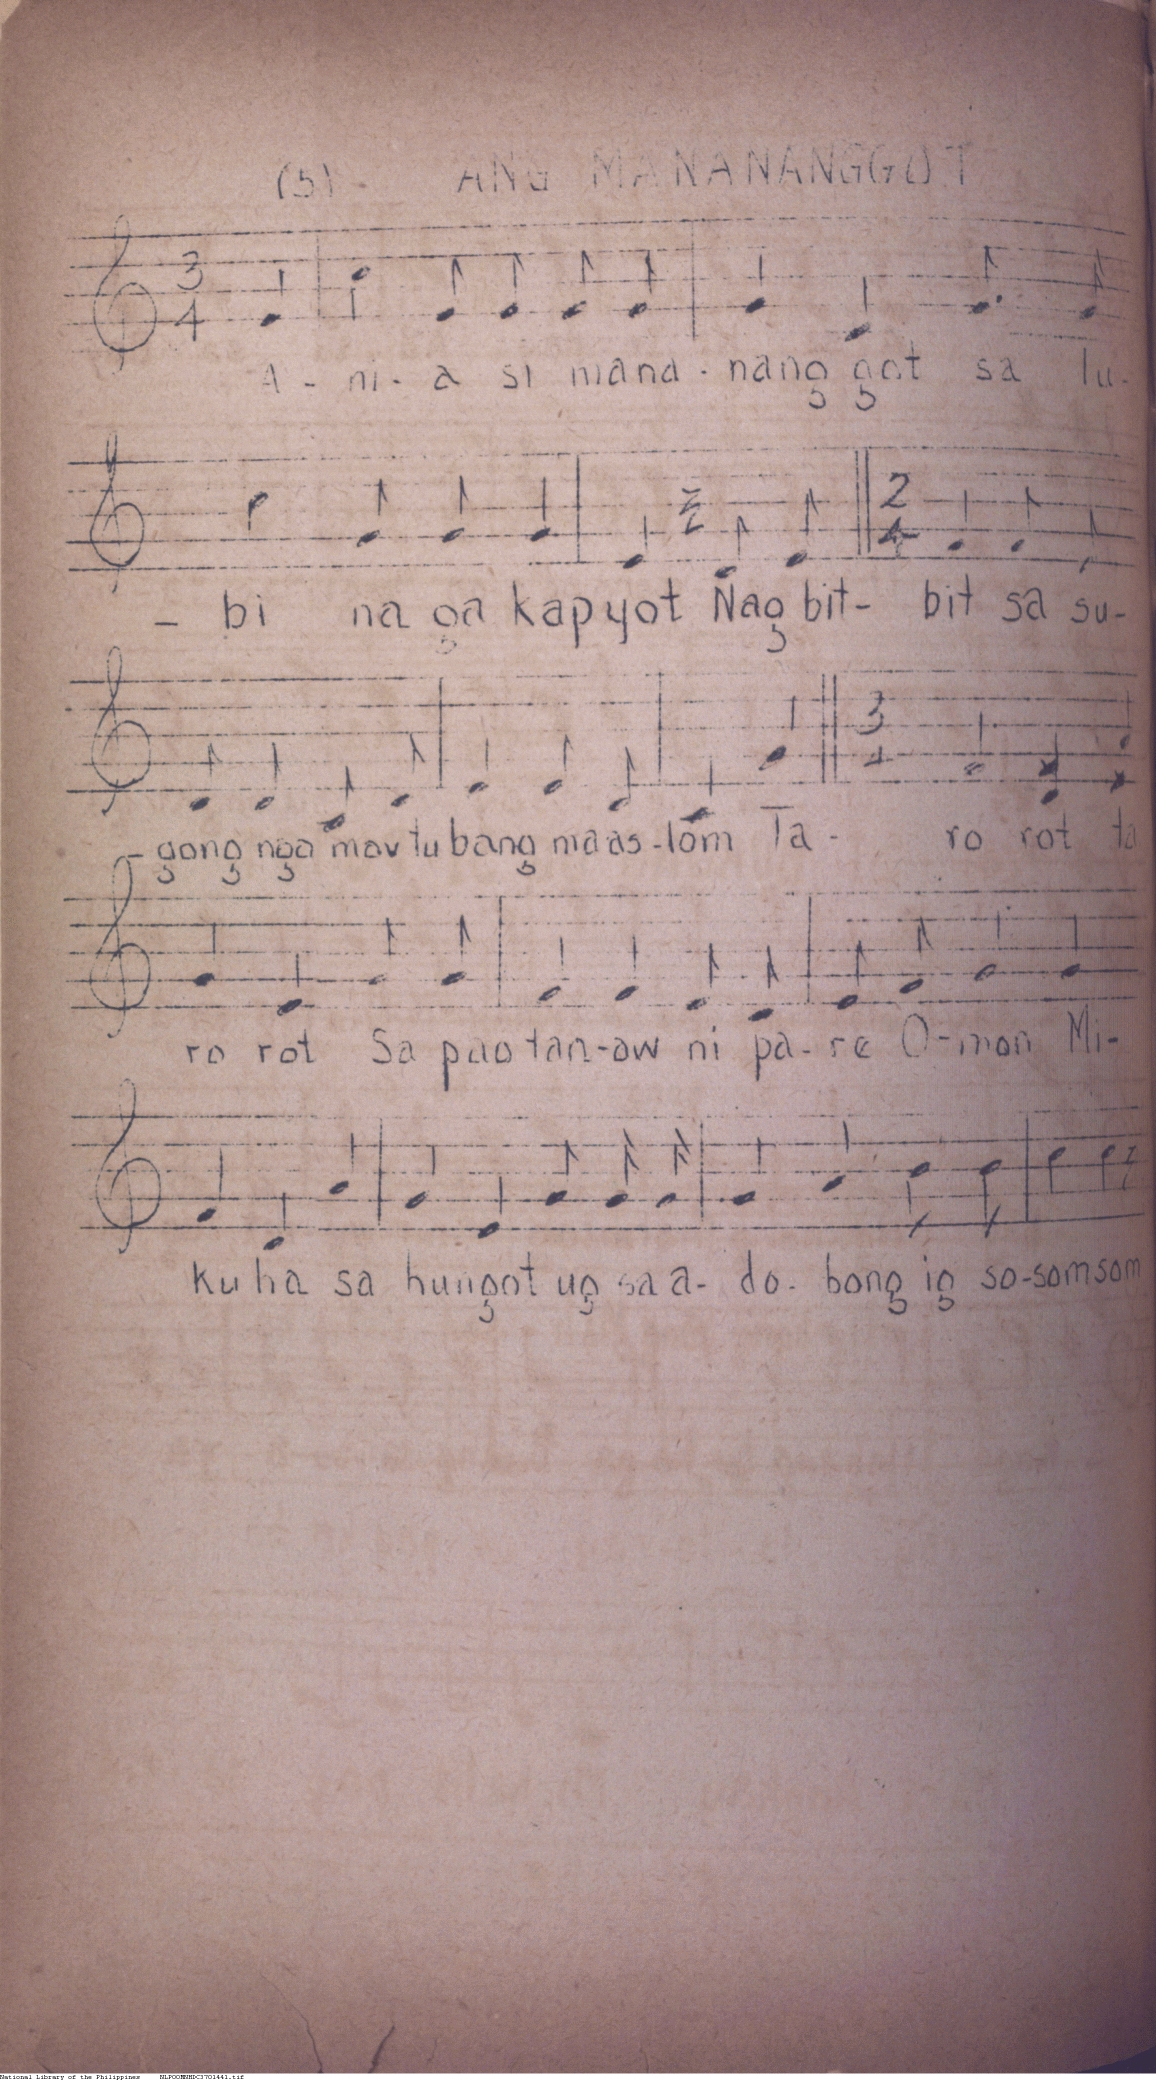 (5) - ANG MANANANGGOT
3 4
A - ni - a si mana - nang got sa lu -
2 4
- bi na ga kapyot Nag bit - bit sa su -
3 4
- gong nga mov tu bang maas - lom Ta - ro rot ta
ro rot Sa pao tan - aw ni pa - re O - mon Mi -
ku ha sa hungot ug sa a - do - bong ig so - som som
National Library of the Philippines NLPOOMNHDC3701441.tif